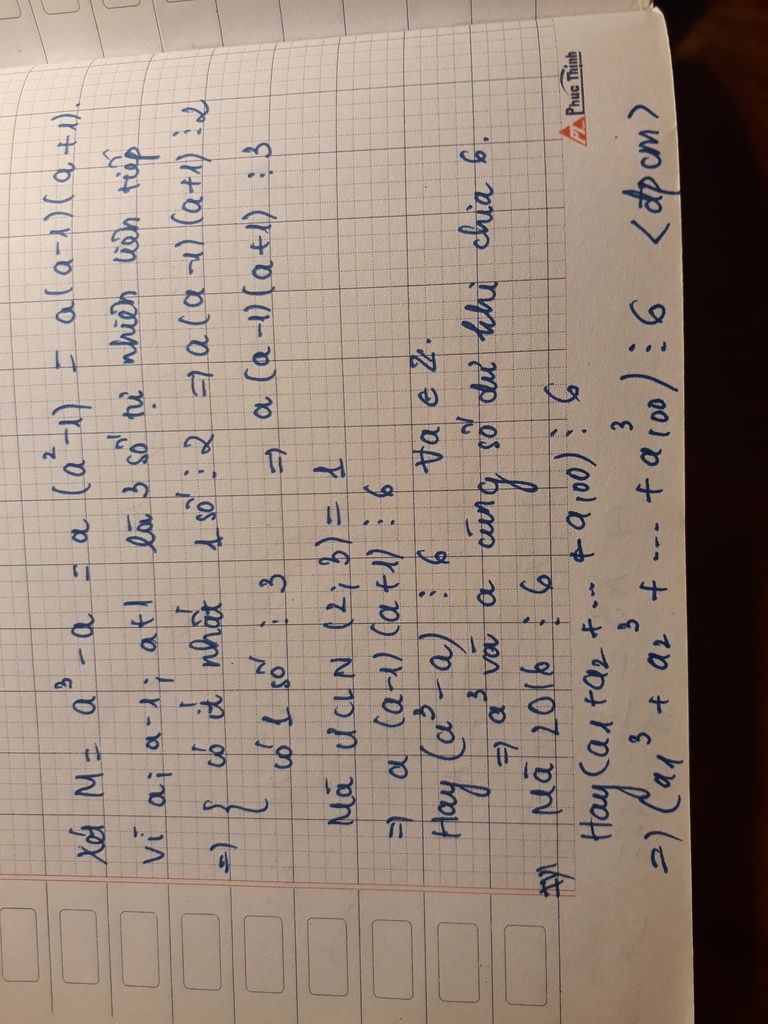 Xét M = a³ - a = a (a² - 1) = a(a-1)(a+1).
Vì a; a-1; a+1 là 3 số tự nhiên liên tiếp
=> { có ít nhất 1 số ⋮ 2 => a(a-1)(a+1) ⋮ 2
có 1 số ⋮ 3 => a(a-1)(a+1) ⋮ 3
Mà ƯCLN (2; 3) = 1
=> a (a-1)(a+1) ⋮ 6
Hay (a³ - a) ⋮ 6 ∀a ∈ Z.
=> a³ và a cùng số dư khi chia 6.
Mà 2016 ⋮ 6
Hay (a1 + a2 + ... + a100) ⋮ 6
=> (a1³ + a2³ + ... + a100³) ⋮ 6 <đpcm>
Phuc Thinh